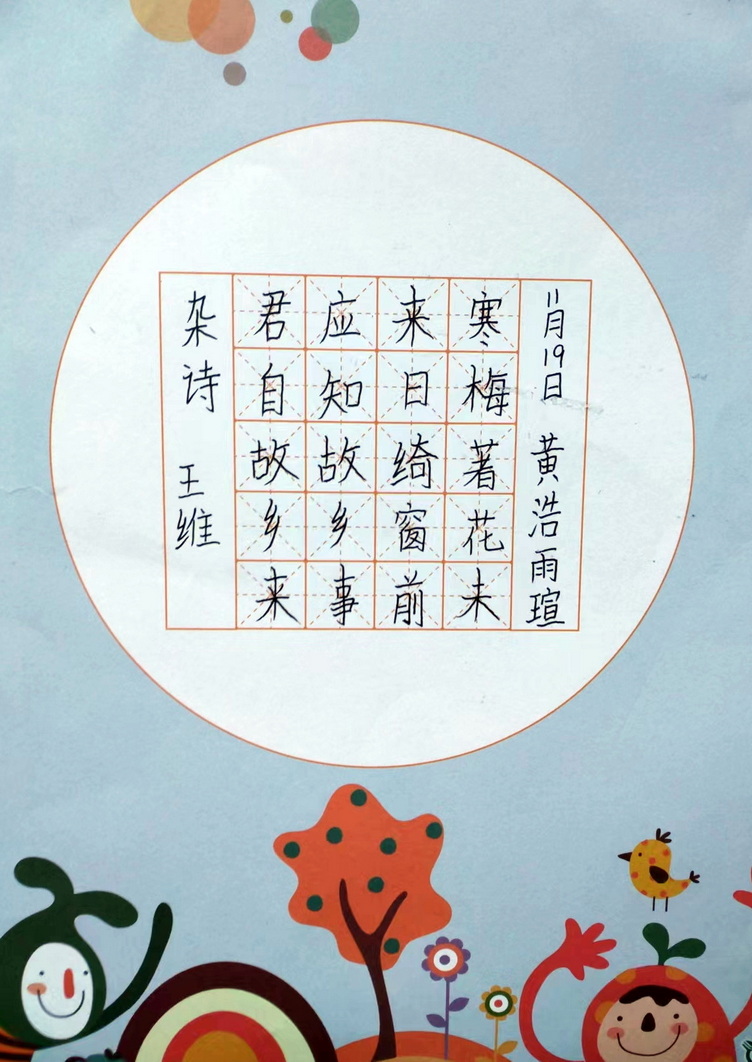 杂诗 王维
君自故乡来
应知故乡事
来日绮窗前
寒梅著花未
11月19日 黄浩雨瑄